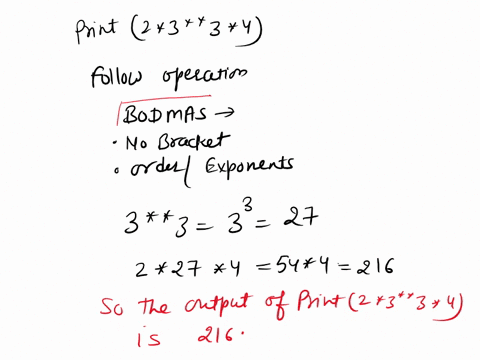 Print (2*3**3*4)
Follow operation
BODMAS →
• No Bracket
• order/ Exponents
3**3 = 3³ = 27
2*27*4 = 54*4 = 216
So the output of Print (2*3**3*4)
is 216.